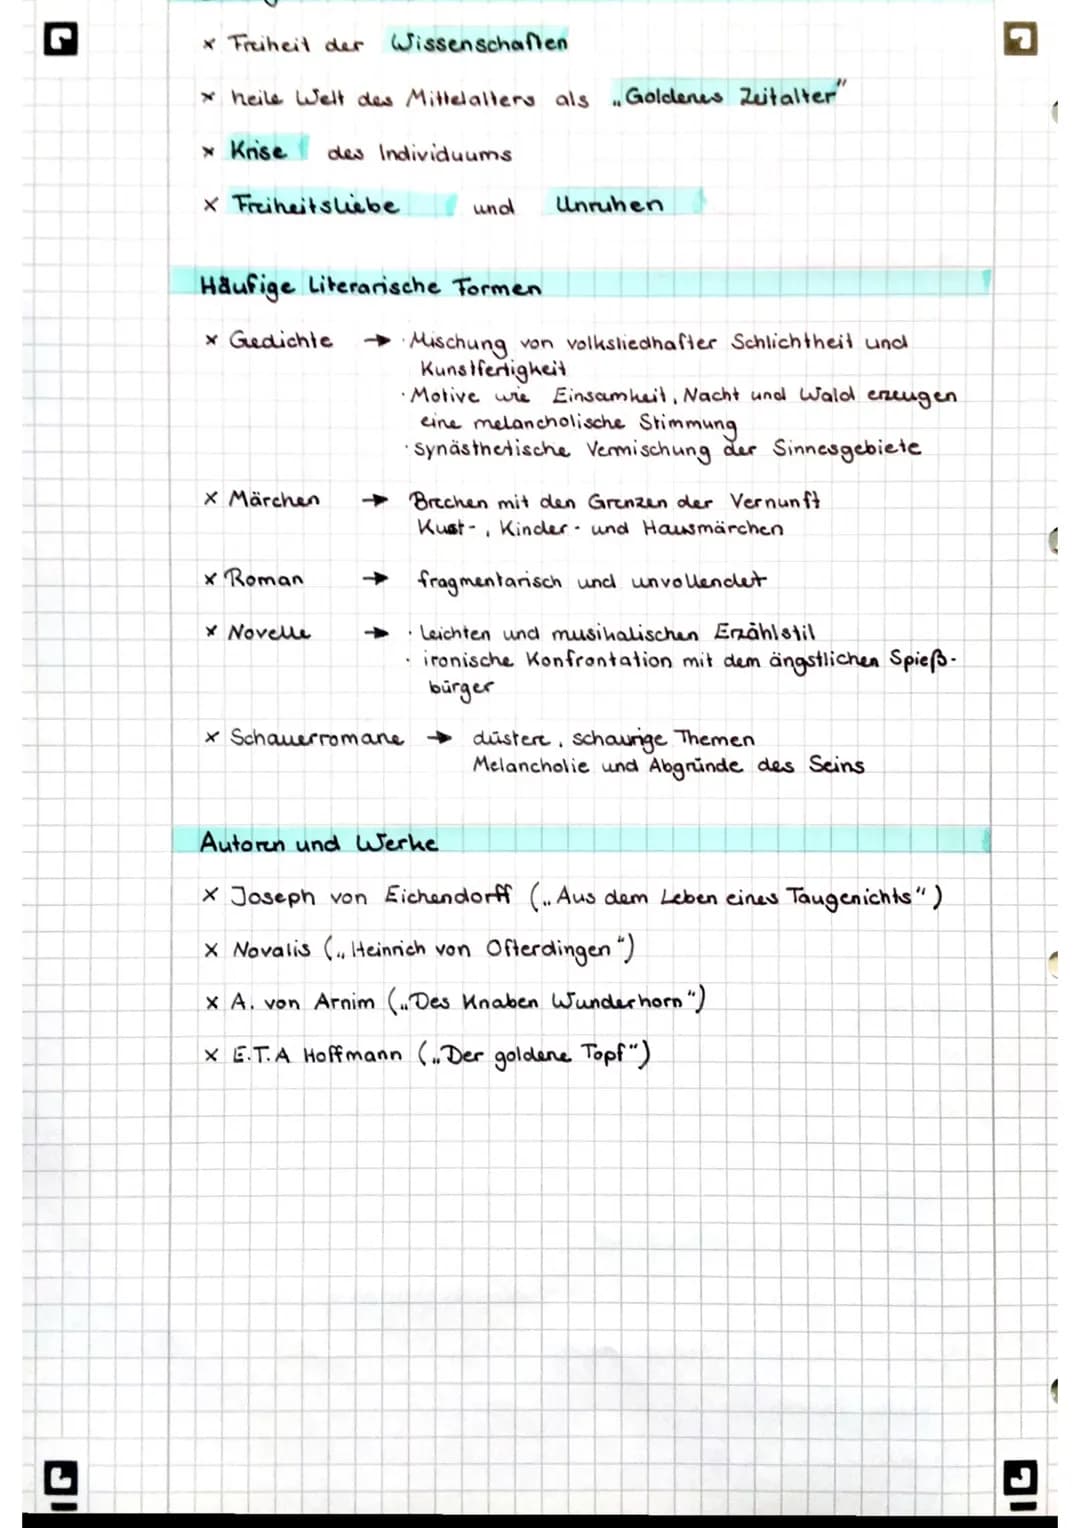 x Freiheit der Wissenschaften
x heile Welt des Mittelalters als „Goldenes Zeitalter"
x Krise des Individuums
x Freiheitsliebe und Unruhen
Häufige Literarische Formen
x Gedichte → · Mischung von volksliedhafter Schlichtheit und
Kunstfertigkeit
· Motive wie Einsamkeit, Nacht und Wald erzeugen
eine melancholische Stimmung
· synästhetische Vermischung der Sinnesgebiete
x Märchen → Brechen mit den Grenzen der Vernunft
Kust-, Kinder- und Hausmärchen
x Roman → fragmentarisch und unvollendet
x Novelle → · Leichten und musikalischen Erzählstil
· ironische Konfrontation mit dem ängstlichen Spieß-
bürger
x Schauerromane → düstere, schaurige Themen
Melancholie und Abgründe des Seins
Autoren und Werke
x Joseph von Eichendorff („Aus dem Leben eines Taugenichts")
x Novalis („Heinrich von Ofterdingen")
x A. von Arnim („Des Knaben Wunderhorn")
x E.T.A Hoffmann („Der goldene Topf")